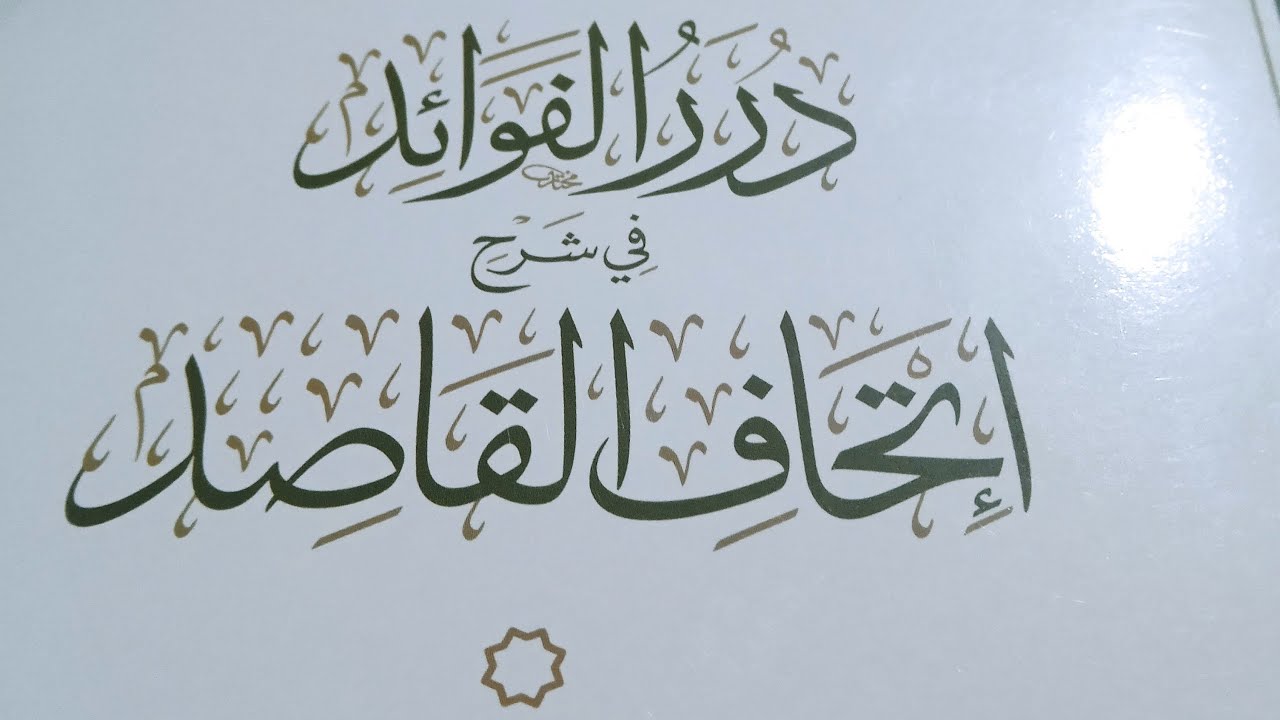 دُرَرُ الفَوَائِد
فِي شَرَحِ
إِتْحَافِ القَاصِد